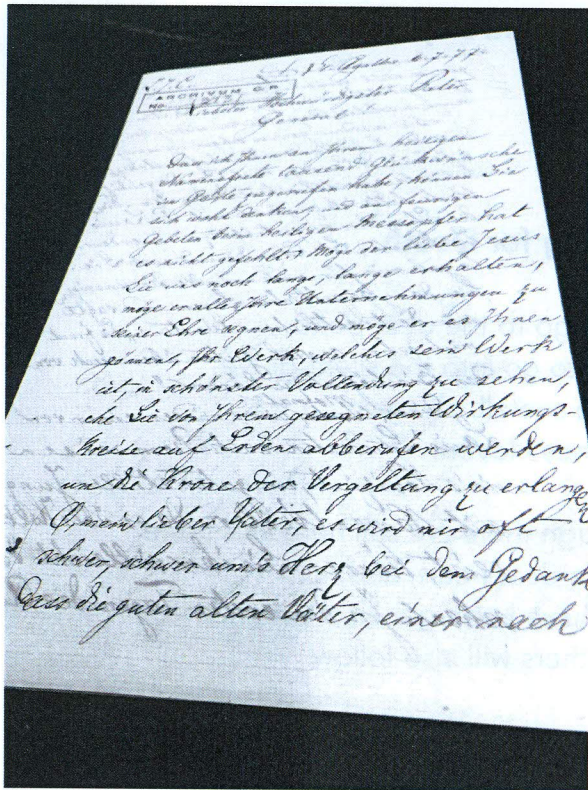 J.J.C.
St. Agatha 2.7.77.
ARCHIVUM C.R.
No.
Hochwürdigster Pater
General
Dass ich Ihnen an Ihrem heiligen
Namensfeste tausend Glückwünsche
im Geiste zugerufen habe, können Sie
sich wohl denken, und an feurigen
Gebeten beim heiligen Messopfer hat
es nicht gefehlt. Möge der liebe Jesus
Sie uns noch lange, lange erhalten,
möge er alle Ihre Unternehmungen zu
seiner Ehre segnen, und möge er es Ihnen
gönnen, Ihr Werk, welches sein Werk
ist, in schönster Vollendung zu sehen,
ehe Sie von Ihrem gesegneten Wirkungs-
kreise auf Erden abberufen werden,
um die Krone der Vergeltung zu erlangen
O, mein lieber Vater, es wird mir oft
schwer, schwer um's Herz bei dem Gedank
Dass die guten alten Väter, einer nach